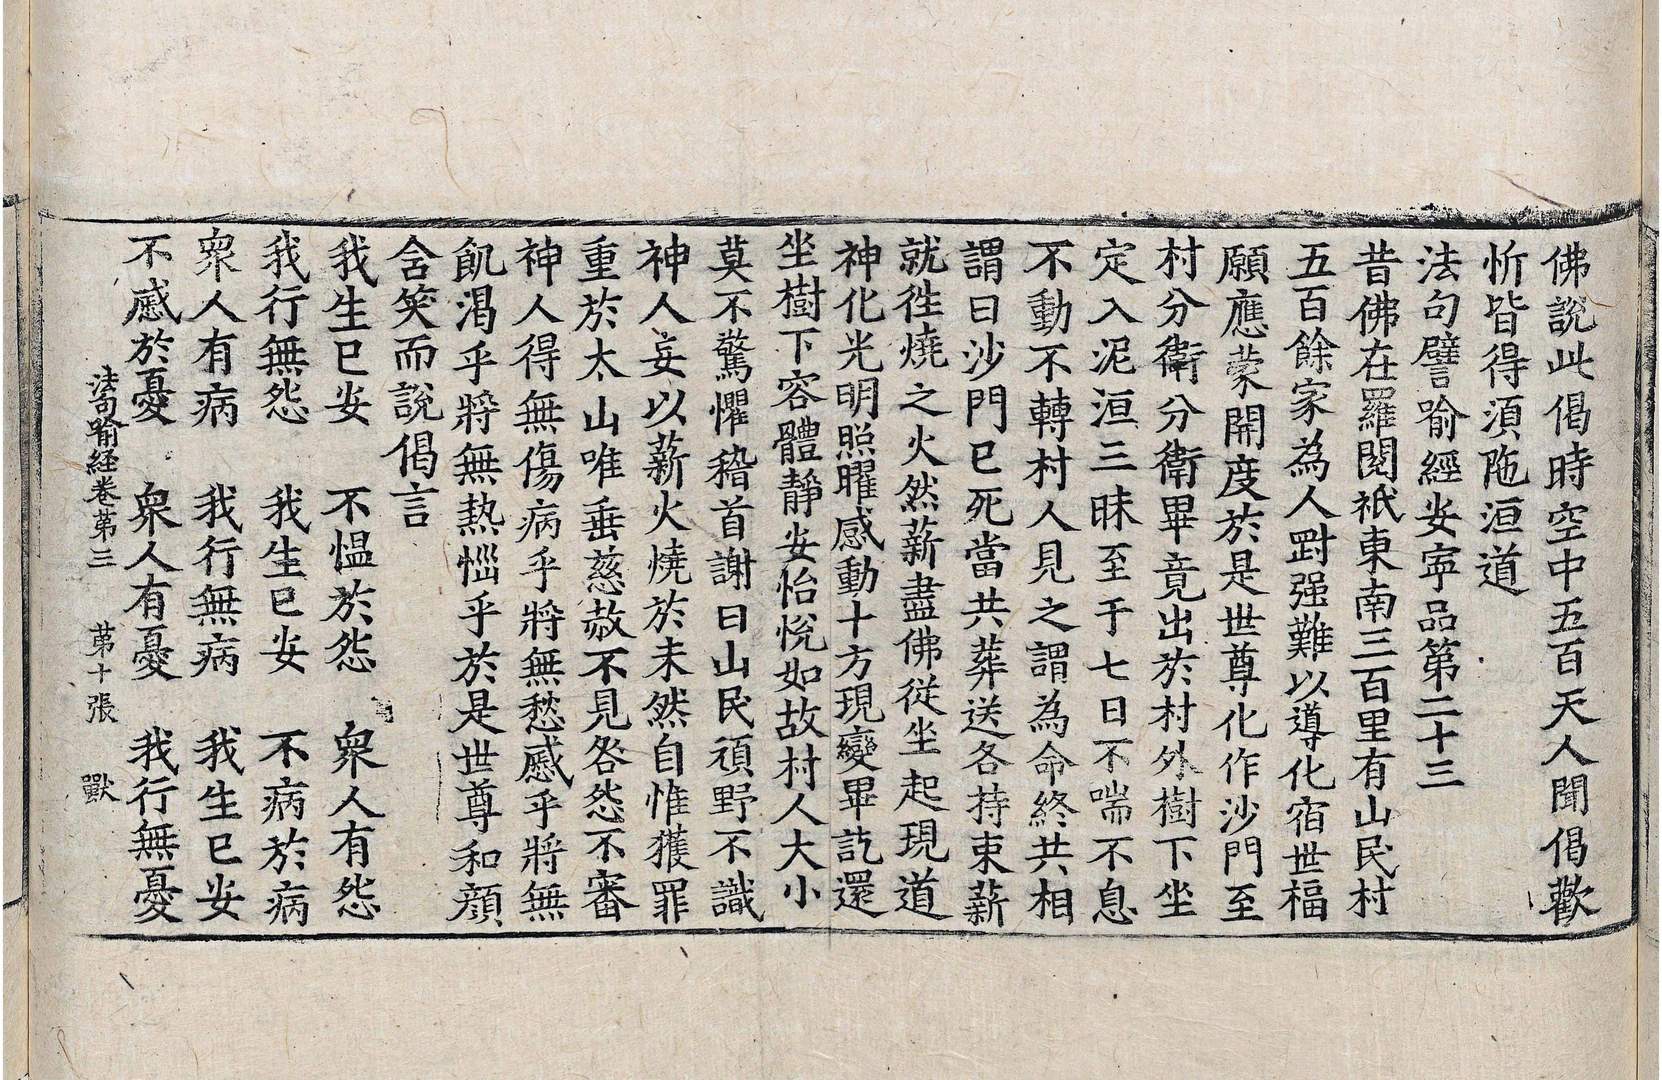 佛說此偈時空中五百天人聞偈歡
忻皆得須陁洹道
法句譬喻經安寧品第二十三
昔佛在羅閱祇東南三百里有山民村
五百餘家為人㓻强難以導化宿世福
願應蒙開度於是世尊化作沙門至
村分衛分衛畢竟出於村外樹下坐
定入泥洹三昧至于七日不喘不息
不動不轉村人見之謂為命終共相
謂曰沙門已死當共葬送各持束薪
就徃燒之火然薪盡佛從坐起現道
神化光明照曜感動十方現變畢訖還
坐樹下容體靜安怡悅如故村人大小
莫不驚懼稽首謝曰山民頑野不識
神人妄以薪火燒於未然自惟獲罪
重於太山唯垂慈赦不見咎怨不審
神人得無傷病乎將無愁慼乎將無
飢渴乎將無熱惱乎於是世尊和顔
含笑而說偈言
我生已安　不慍於怨　衆人有怨
我行無怨　我生已安　不病於病
衆人有病　我行無病　我生已安
不慼於憂　衆人有憂　我行無憂
法句喻経卷第三　第十張　獸